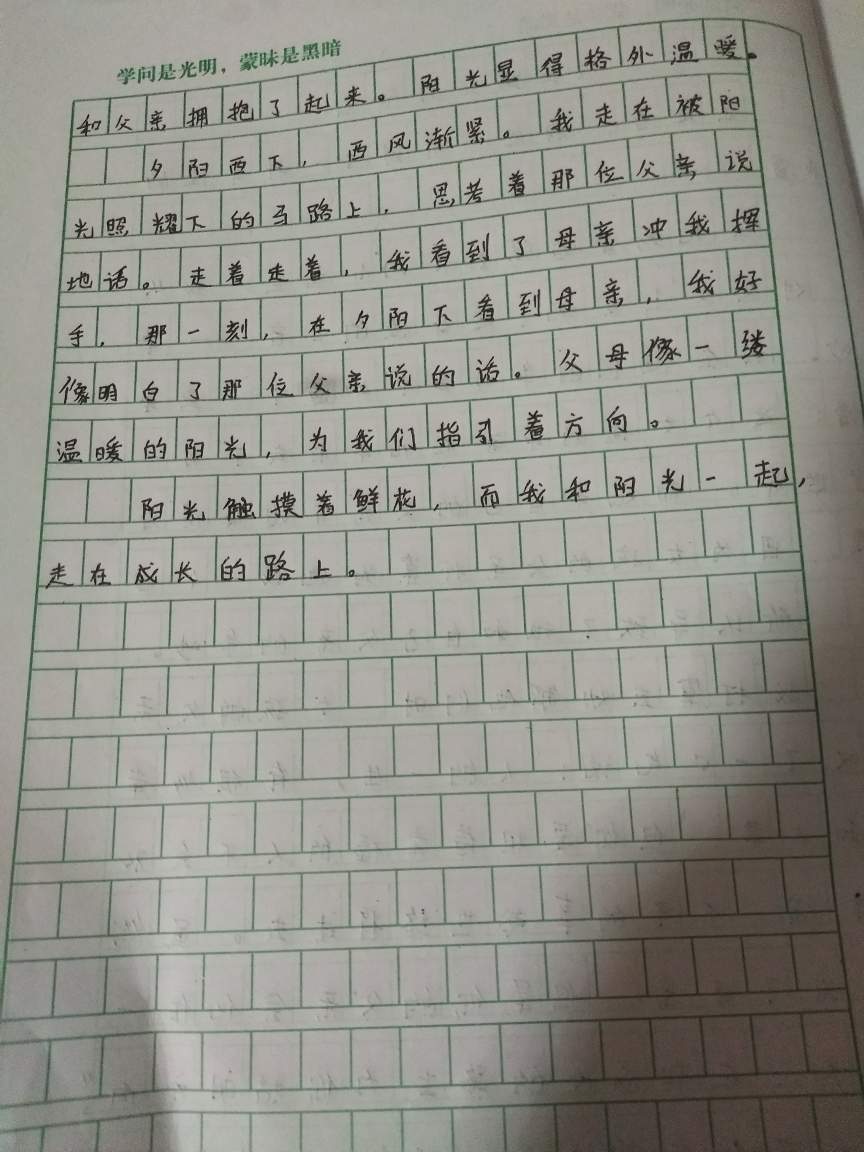 学问是光明，蒙昧是黑暗
和父亲拥抱了起来。阳光显得格外温暖。
夕阳西下，西风渐紧。我走在被阳
光照耀下的马路上，思考着那位父亲说
地话。走着走着，我看到了母亲冲我挥
手，那一刻，在夕阳下看到母亲，我好
像明白了那位父亲说的话。父母像一缕
温暖的阳光，为我们指引着方向。
阳光触摸着鲜花，而我和阳光一起，
走在成长的路上。